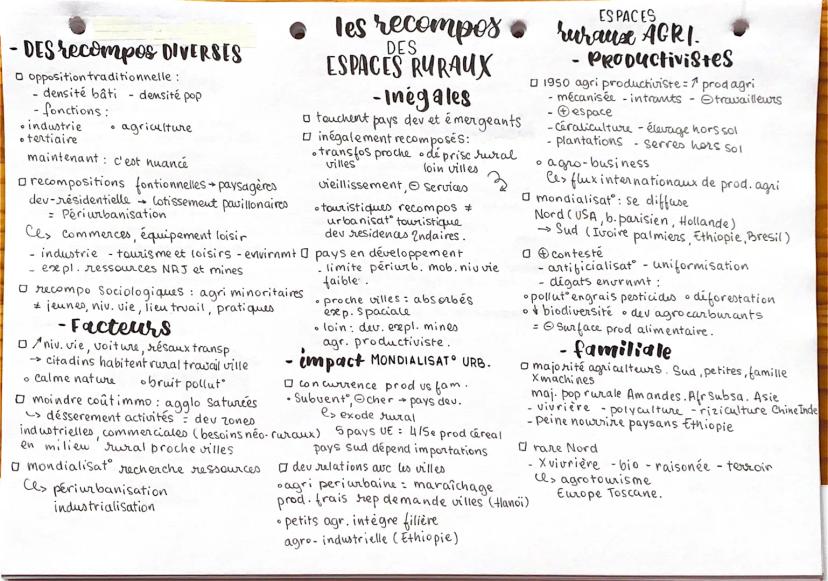 les recompos
DES
ESPACES RURAUX
- DES recompos DIVERSES
□ opposition traditionnelle :
- densité bâti - densité pop
- fonctions :
• industrie • agriculture
• tertiaire
maintenant : c'est nuancé
□ recompositions fontionnelles → paysagères
dev-résidentielle → lotissement pavillonaires
= Périurbanisation
↳ commerces, équipement loisir
- industrie - tourisme et loisirs - envirnmt
- expl. ressources NRJ et mines
□ recompo Sociologiques : agri minoritaires
≠ jeunes, niv. vie, lieu travail, pratiques
- Facteurs
□ ↗ niv. vie, voiture, résaux transp
→ citadins habitent rural travail ville
• calme nature • bruit pollut°
□ moindre coût immo : agglo saturées
↳ désserement activités = dev zones
industrielles, commerciales (besoins néo-ruraux)
en milieu rural proche villes
□ mondialisat° recherche ressources
↳ périurbanisation
industrialisation
- Inégales
□ touchent pays dev et émergeants
□ inégalement recomposés :
• transfos proche villes • déprise rural loin villes
vieillissement, ⊖ services
• touristiques recompos ≠
urbanisat° touristique
dev residences 2ndaires.
□ pays en développement
- limite périurb. mob. niv vie
faible.
• proche villes : absorbés
exp. spaciale
• loin : dev. expl. mines
agr. productiviste.
- impact MONDIALISAT° URB.
□ concurrence prod vs fam.
• Subvent°, ⊖ cher → pays dev.
↳ exode rural
5 pays UE = 4/5e prod céreal
pays sud dépend importations
□ dev relations avc les villes
• agri periurbaine = maraîchage
prod. frais rep demande villes (Hanoï)
• petits agr. intègre filière
agro-industrielle (Ethiopie)
ESPACES
ruraux AGRI.
- PRODUCTIVISTES
□ 1950 agri productiviste = ↗ prod agri
- mécanisée - intrants - ⊖ travailleurs
- ⊕ espace
- Céréaliculture - élevage hors sol
- plantations - serres hors sol
• agro-business
↳ flux internationaux de prod. agri
□ mondialisat° : se diffuse
Nord (USA, b. parisien, Hollande)
→ Sud (Ivoire palmiers, Ethiopie, Bresil)
□ ⊕ contesté
- artificialisat° - uniformisation
- dégats envrnmt :
• pollut° engrais pesticides • déforestation
• ↓ biodiversité • dev agrocarburants
= ⊖ surface prod alimentaire.
- familiale
□ majorité agriculteurs. Sud, petites, famille
X machines
maj. pop rurale Amandes. Afr Subsa. Asie
- vivrière - polyculture - riziculture Chine Inde
- peine nourrire paysans Ethiopie
□ rare Nord
- X vivrière - bio - raisonée - terroir
↳ agrotourisme
Europe Toscane.